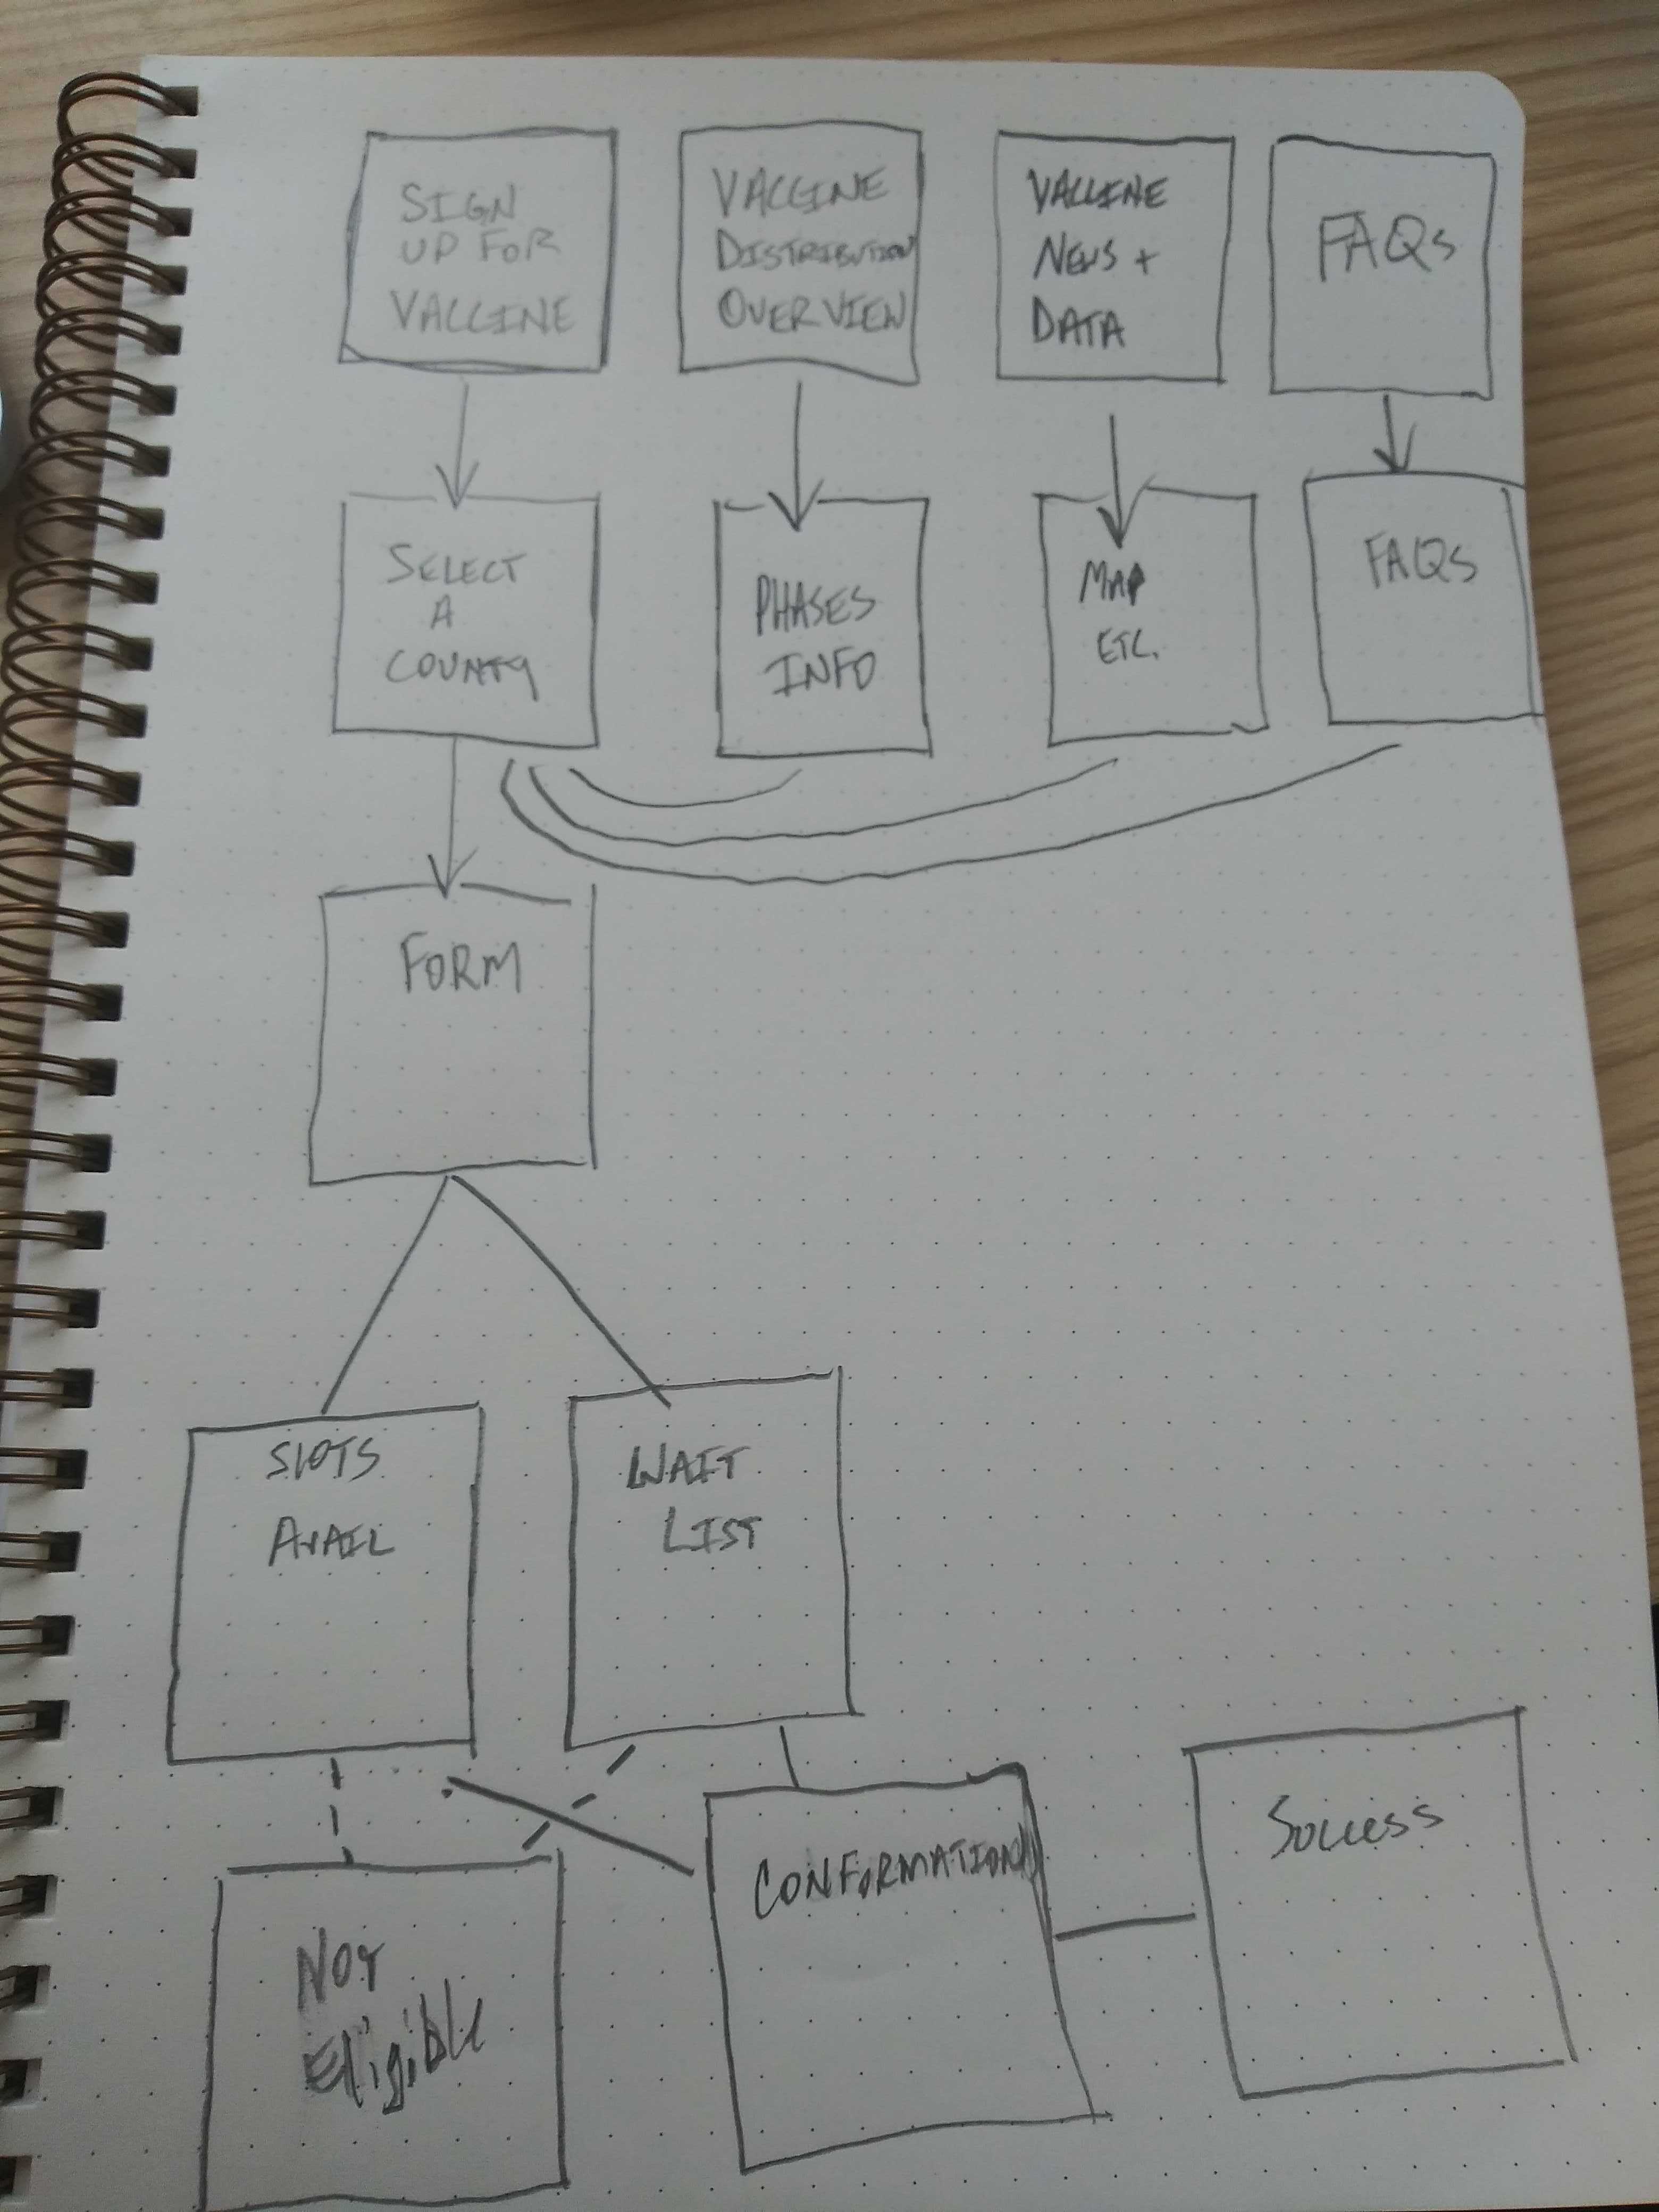 SIGN
UP FOR
VACCINE
VACCINE
DISTRIBUTION
OVERVIEW
VACCINE
NEWS +
DATA
FAQs
SELECT
A
COUNTY
PHASES
INFO
MAP
ETC.
FAQs
FORM
SLOTS
AVAIL
WAIT
LIST
NOT
Eligible
CONFORMATION
Success